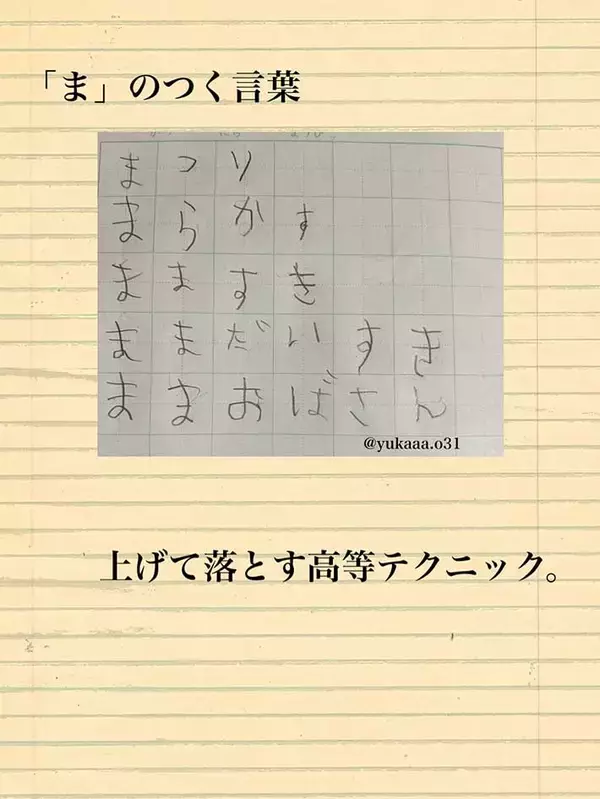 「ま」のつく言葉
まつり
まらかす
ますき
ままだいすき
ままおばさん
@yukaaa.o31
上げて落とす高等テクニック。